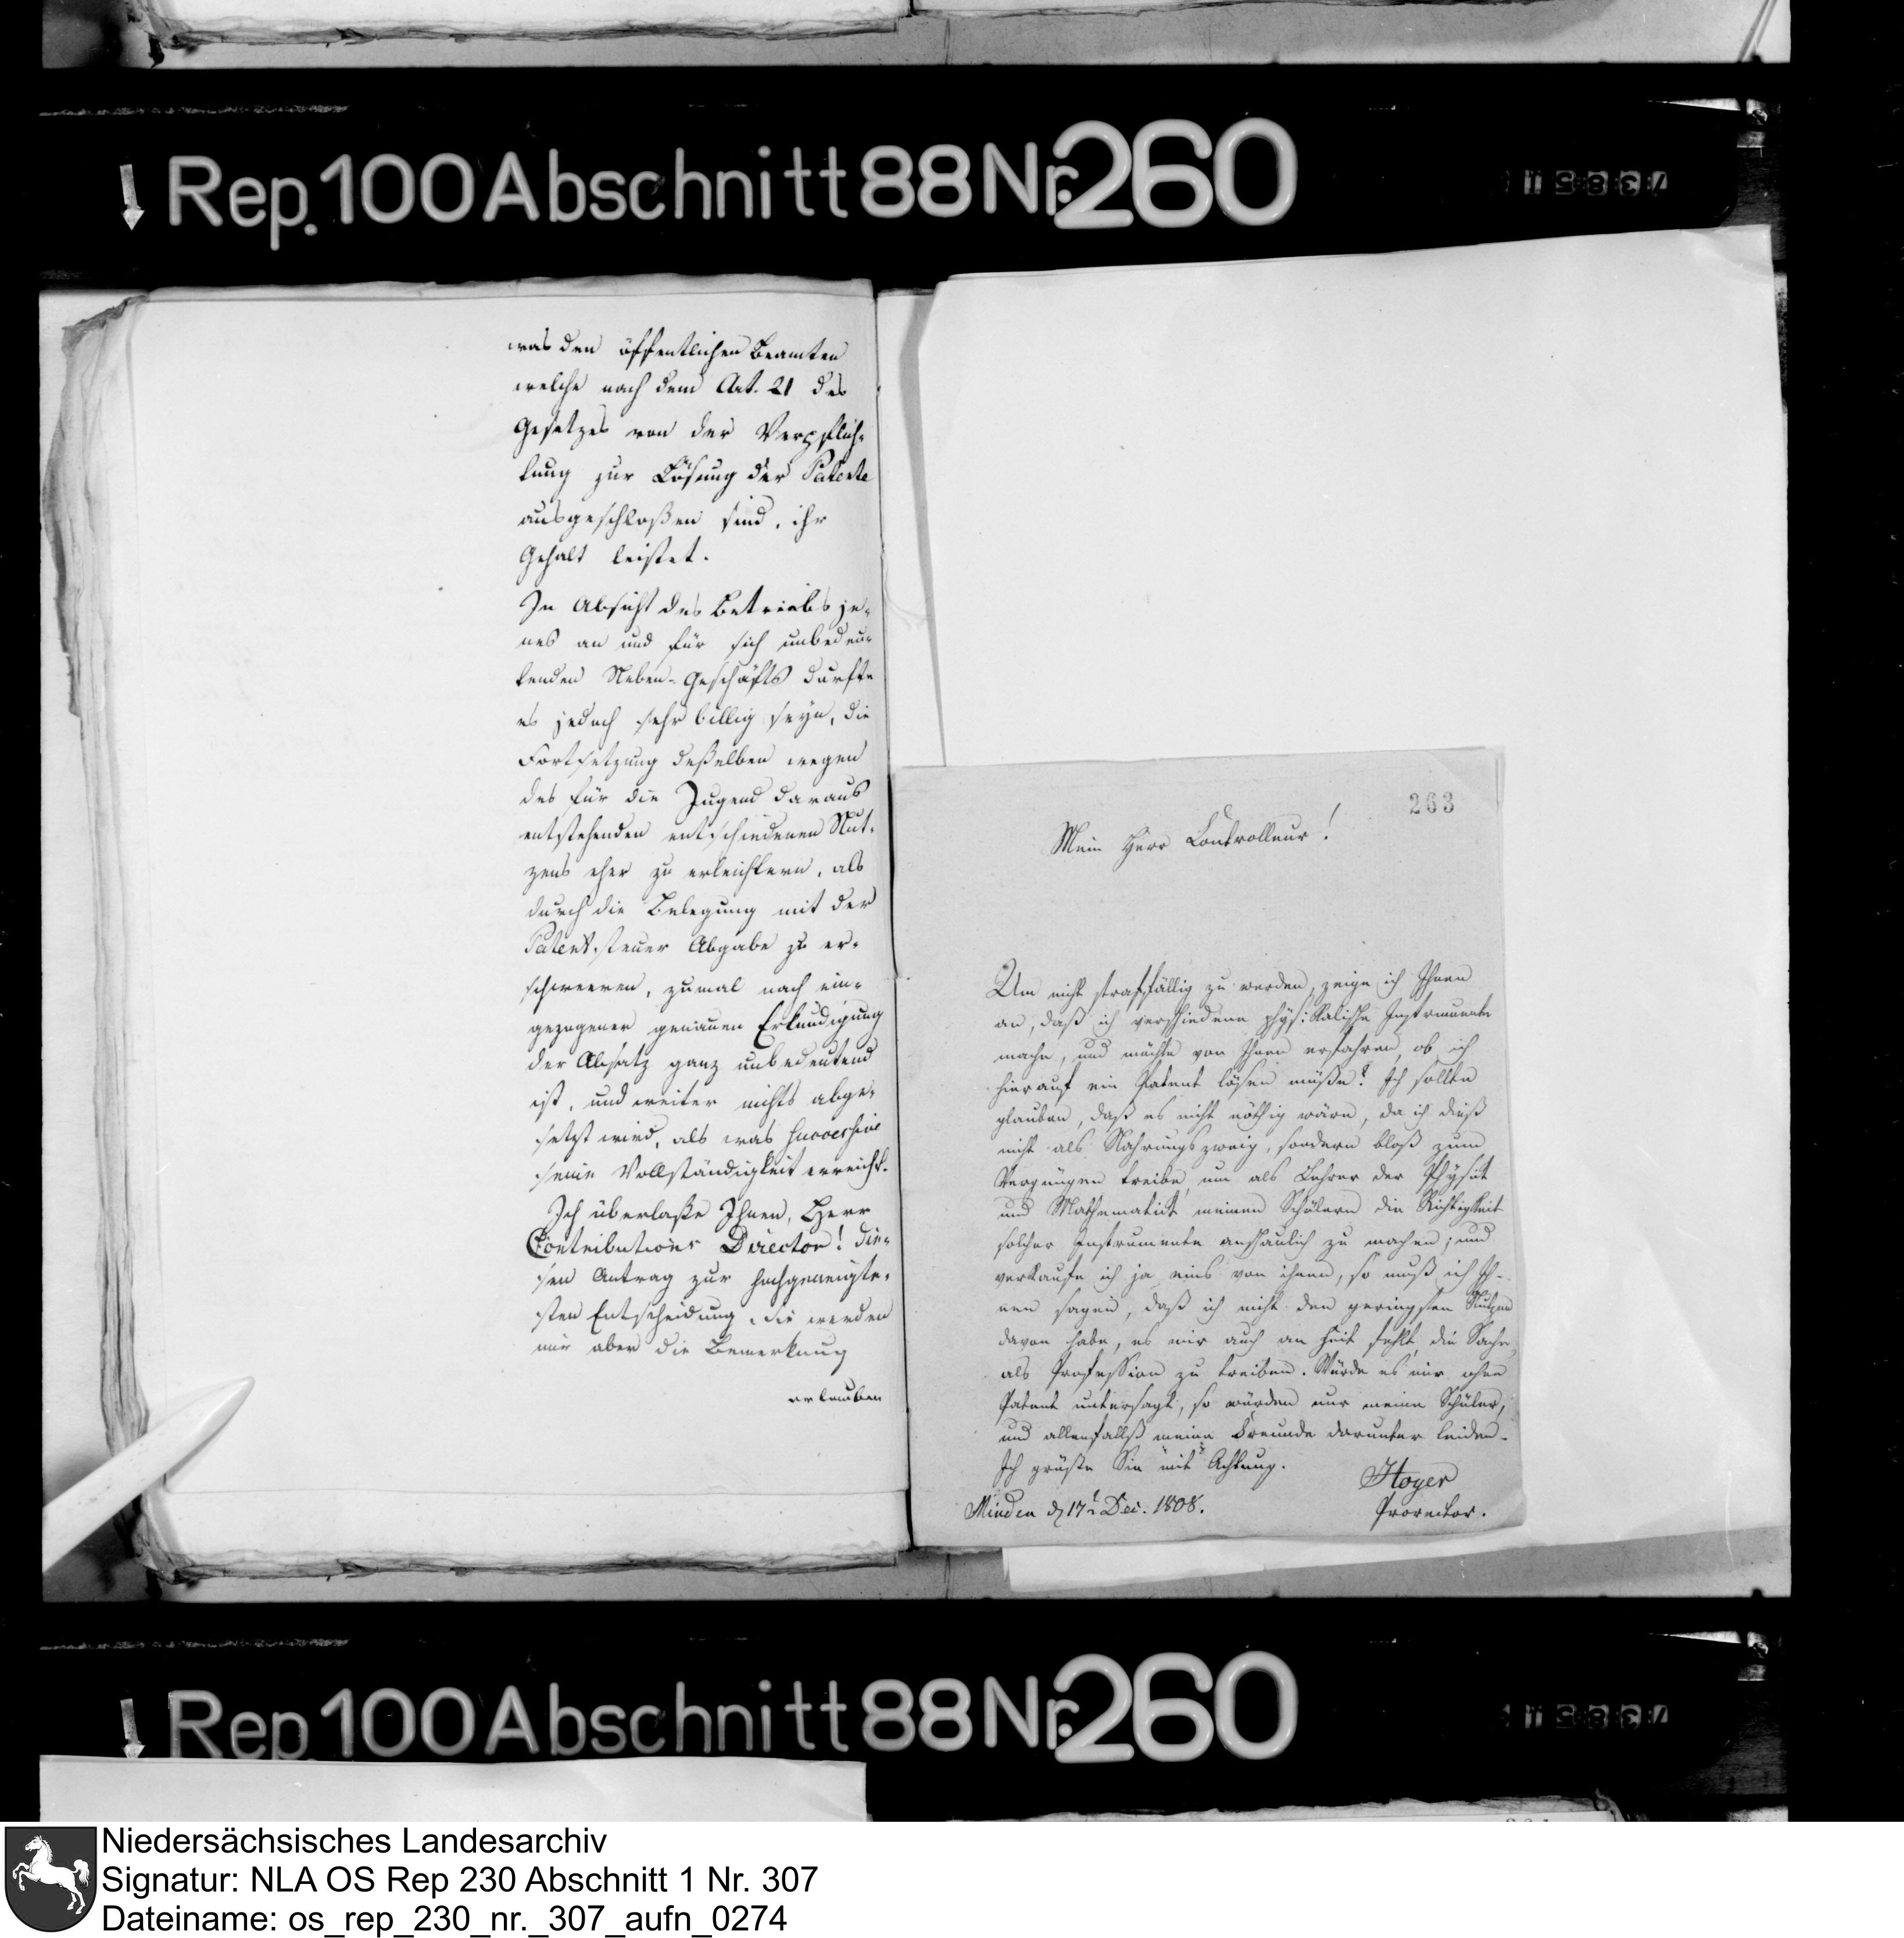 Rep. 100 Abschnitt 88 Nr. 260
was den öffentlichen Beamten
welche nach dem Art. 21 des
Gesetzes von der Verpflich-
tung zur Lösung der Patente
ausgeschloßen sind, ihr
Gehalt leistet.
In Absicht des Betriebs je-
nes an und für sich unbedeu-
tenden Neben-Geschäfts durfte
es jedoch sehr billig seyn, die
Fortsetzung deßelben wegen
des für die Jugend daraus
entstehenden entschiedenen Nut-
zens eher zu erleichtern, als
durch die Belegung mit der
Patent-steuer Abgabe zu er-
schweeren, zumal nach ein-
gezogener genauen Erkundigung
der Absatz ganz unbedeutend
ist, und weiter nichts abge-
setzt wird, als was successive
seine Vollständigkeit erreicht.
Ich überlaße Ihnen, Herr
Contributions Director! die-
sen Antrag zur hochgeneigte-
sten Entscheidung, Sie werden
mir aber die Bemerkung
erlauben
263
Mein Herr Controlleur!
Um nicht straffällig zu werden, zeige ich Ihnen
an, daß ich verschiedene physikalische Instrumente
mache, und möchte von Ihnen erfahren, ob ich
hierauf ein Patent lösen müße? Ich sollte
glauben, daß es nicht nöthig wäre, da ich dieß
nicht als Nahrungszweig, sondern bloß zum
Vergnügen treibe, um als Lehrer der Physik
und Mathematick meinen Schülern die Richtigkeit
solcher Instrumente anschaulich zu machen; und
verkaufe ich ja eins von ihnen, so muß ich Ih-
nen sagen, daß ich nicht den geringsten Nutzen
davon habe, es mir auch an Zeit fehlt, die Sache
als Profession zu treiben. Würde es mir ohne
Patent untersagt, so würden nur meine Schüler,
und allenfallß meine Freunde darunter leiden.
Ich grüße Sie mit Achtung.
Hoyer
Minden d 17t Dec. 1808.
Prorector.
Rep. 100 Abschnitt 88 Nr. 260
Niedersächsisches Landesarchiv
Signatur: NLA OS Rep 230 Abschnitt 1 Nr. 307
Dateiname: os_rep_230_nr._307_aufn_0274